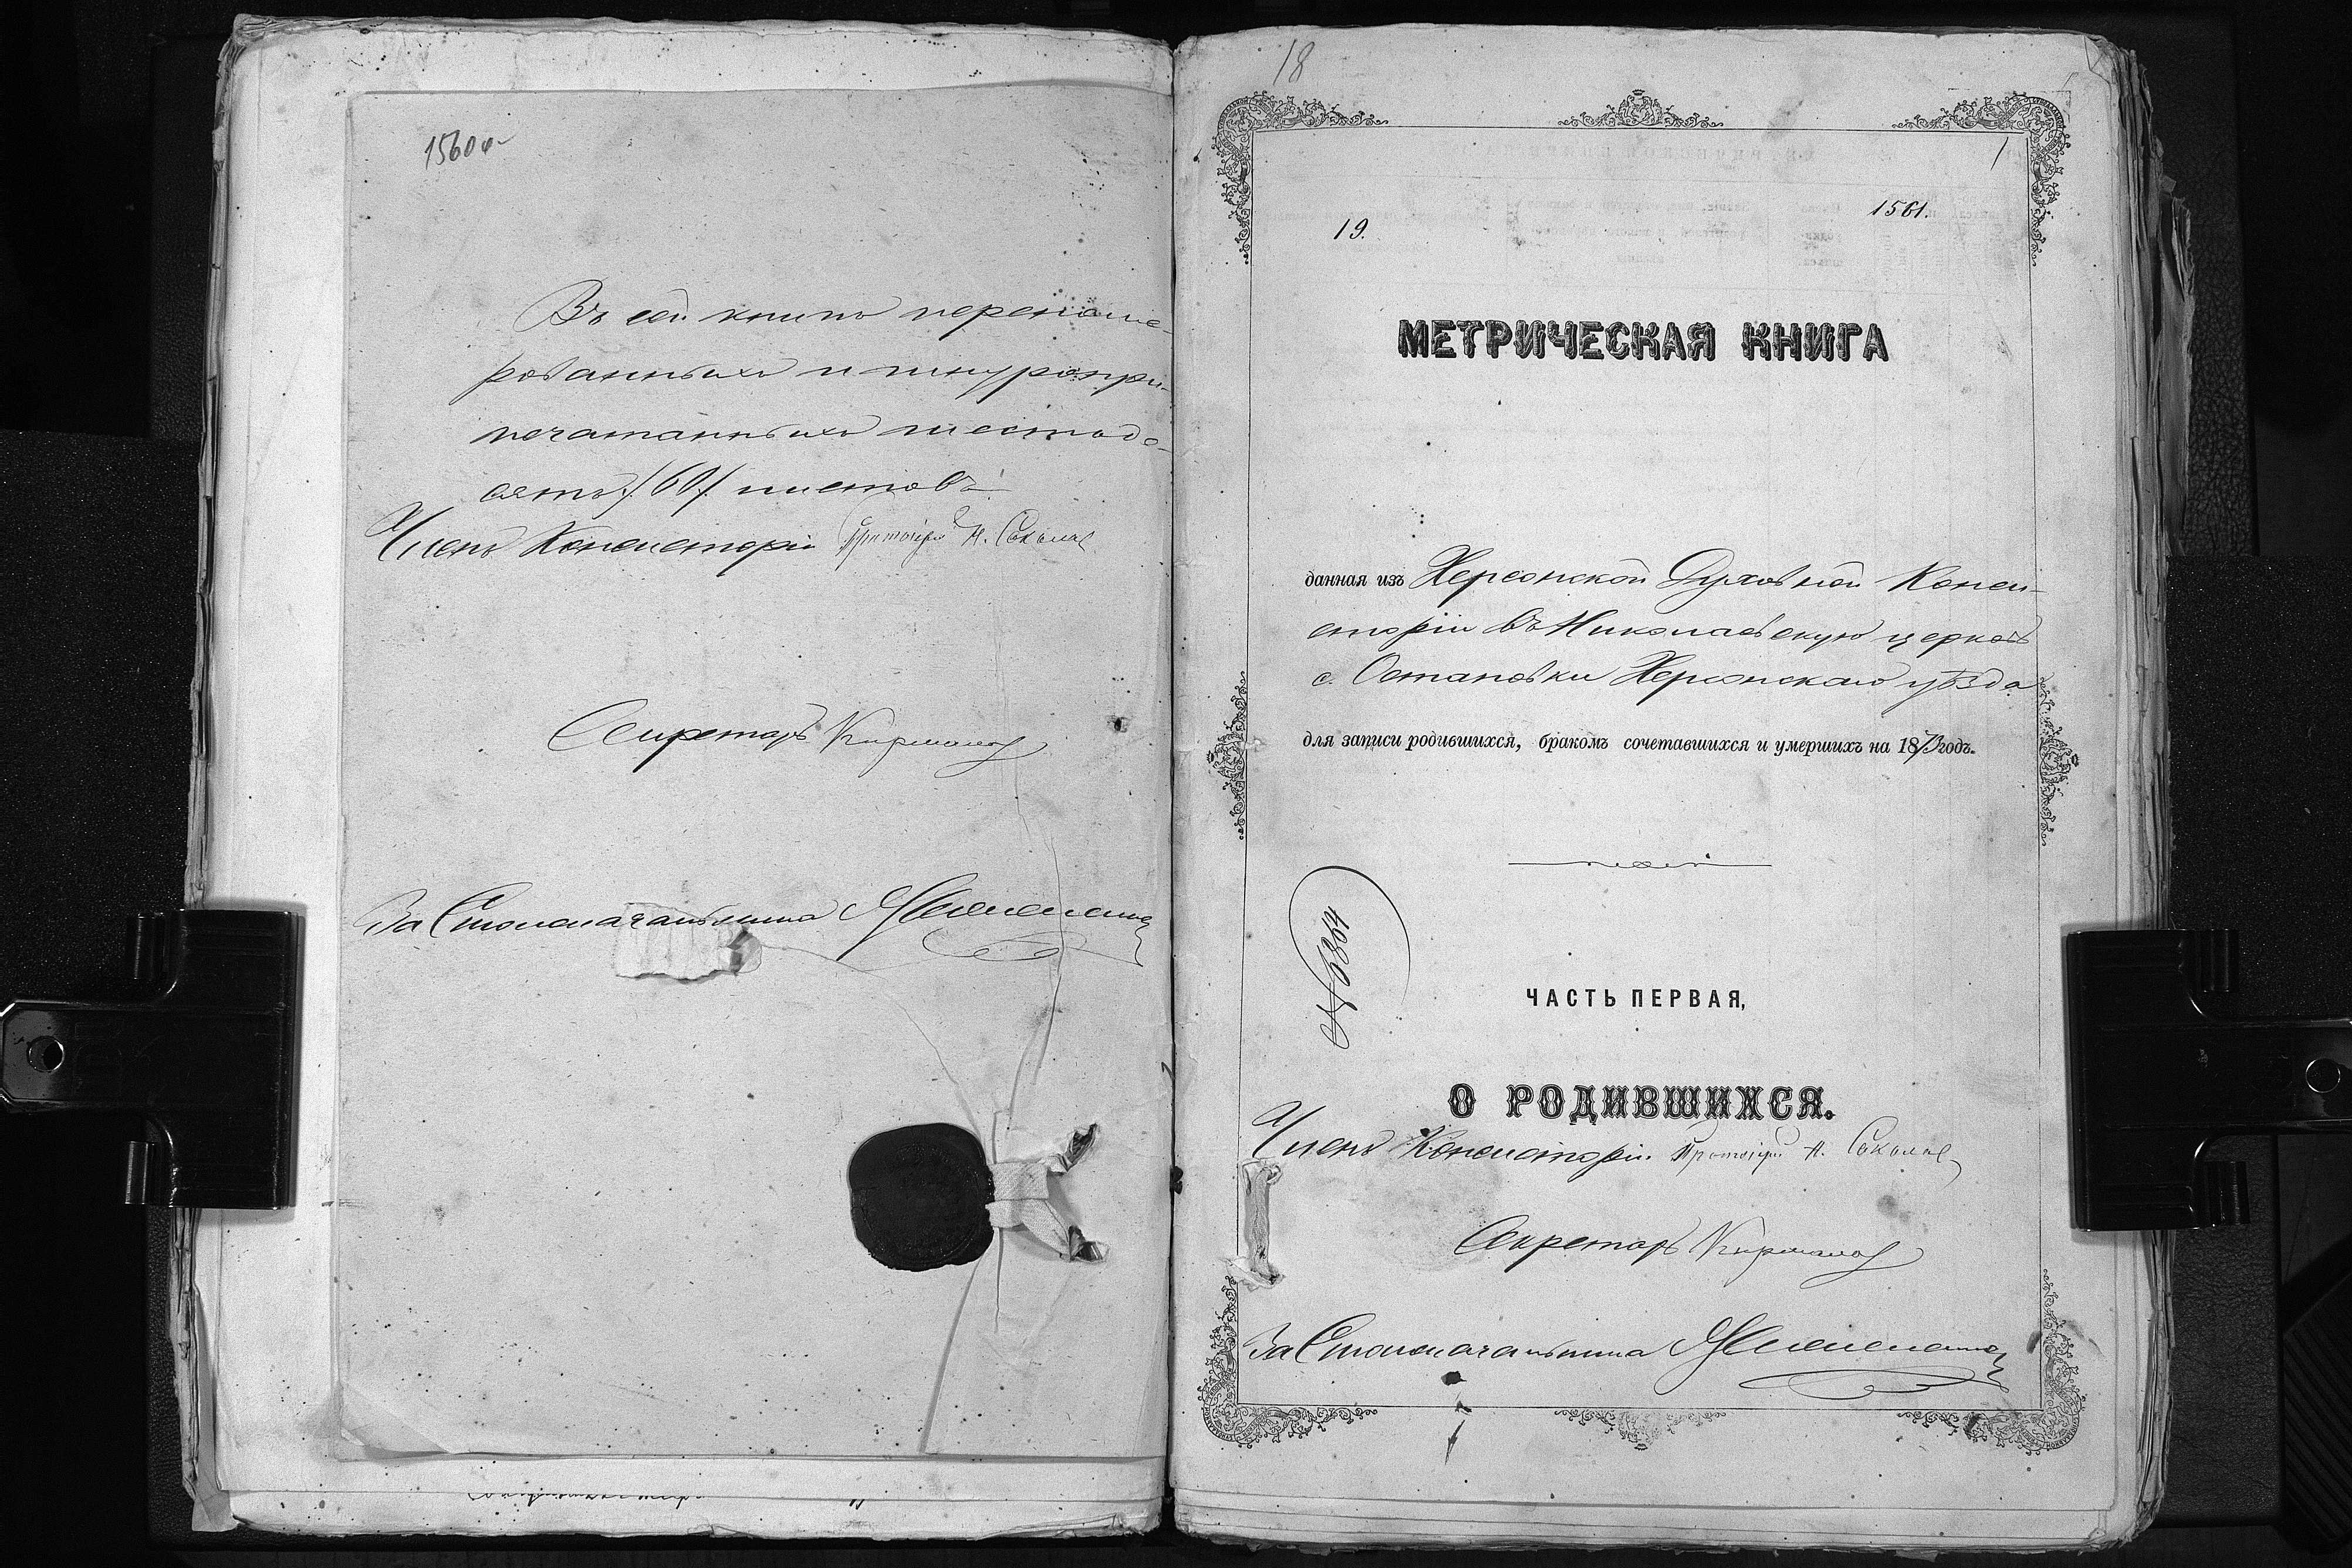 1560 об
Въ сей книгѣ перенуме-
рованныхъ и шнуропри-
печатанныхъ шестьде-
сятъ /60/ листовъ
Членъ Консисторіи Протоіерей А. Соколов
Секретарь
За Столоначальника
18
1
19.
1561.
МЕТРИЧЕСКАЯ КНИГА
данная изъ Херсонской Духовной Конси-
сторіи въ Николаевскую церковь
с. Остановки Херсонскаго уѣзда
для записи родившихся, бракомъ сочетавшихся и умершихъ на 1873 годъ.
№ 5864
ЧАСТЬ ПЕРВАЯ,
О РОДИВШИХСЯ.
Членъ Консисторіи Протоіерей А. Соколов
Секретарь
За Столоначальника